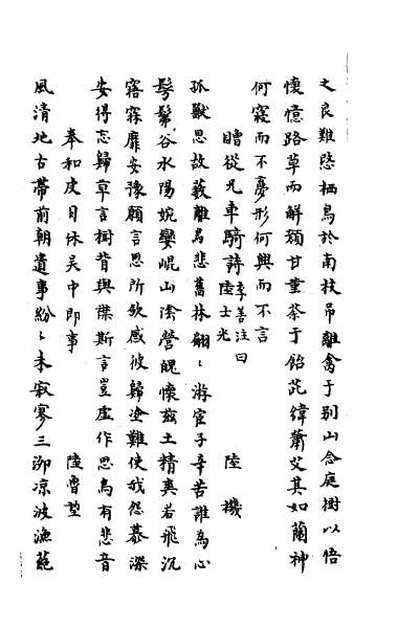 之良難愍栖鳥於南枝吊離禽于別山念庭樹以悟
懷憶路草而解顏甘堇荼于飴芘緯蕭艾其如蘭神
何寢而不夢形何興而不言
贈從兄車騎詩李善注曰陸士光 陸機
孤獸思故藪離鳥悲舊林翩〻游宦子辛苦誰為心
髣髴谷水陽婉孌崐山陰營魄懷茲土精爽若飛沉
寤寐靡安豫願言思所欽感彼歸塗難使我怨慕深
安得忘歸草言樹背與襟斯言豈虛作思鳥有悲音
奉和皮日休吳中即事 陸魯望
風清地古帶前朝遺事紛〻未寂寥三泖涼波漁蕝